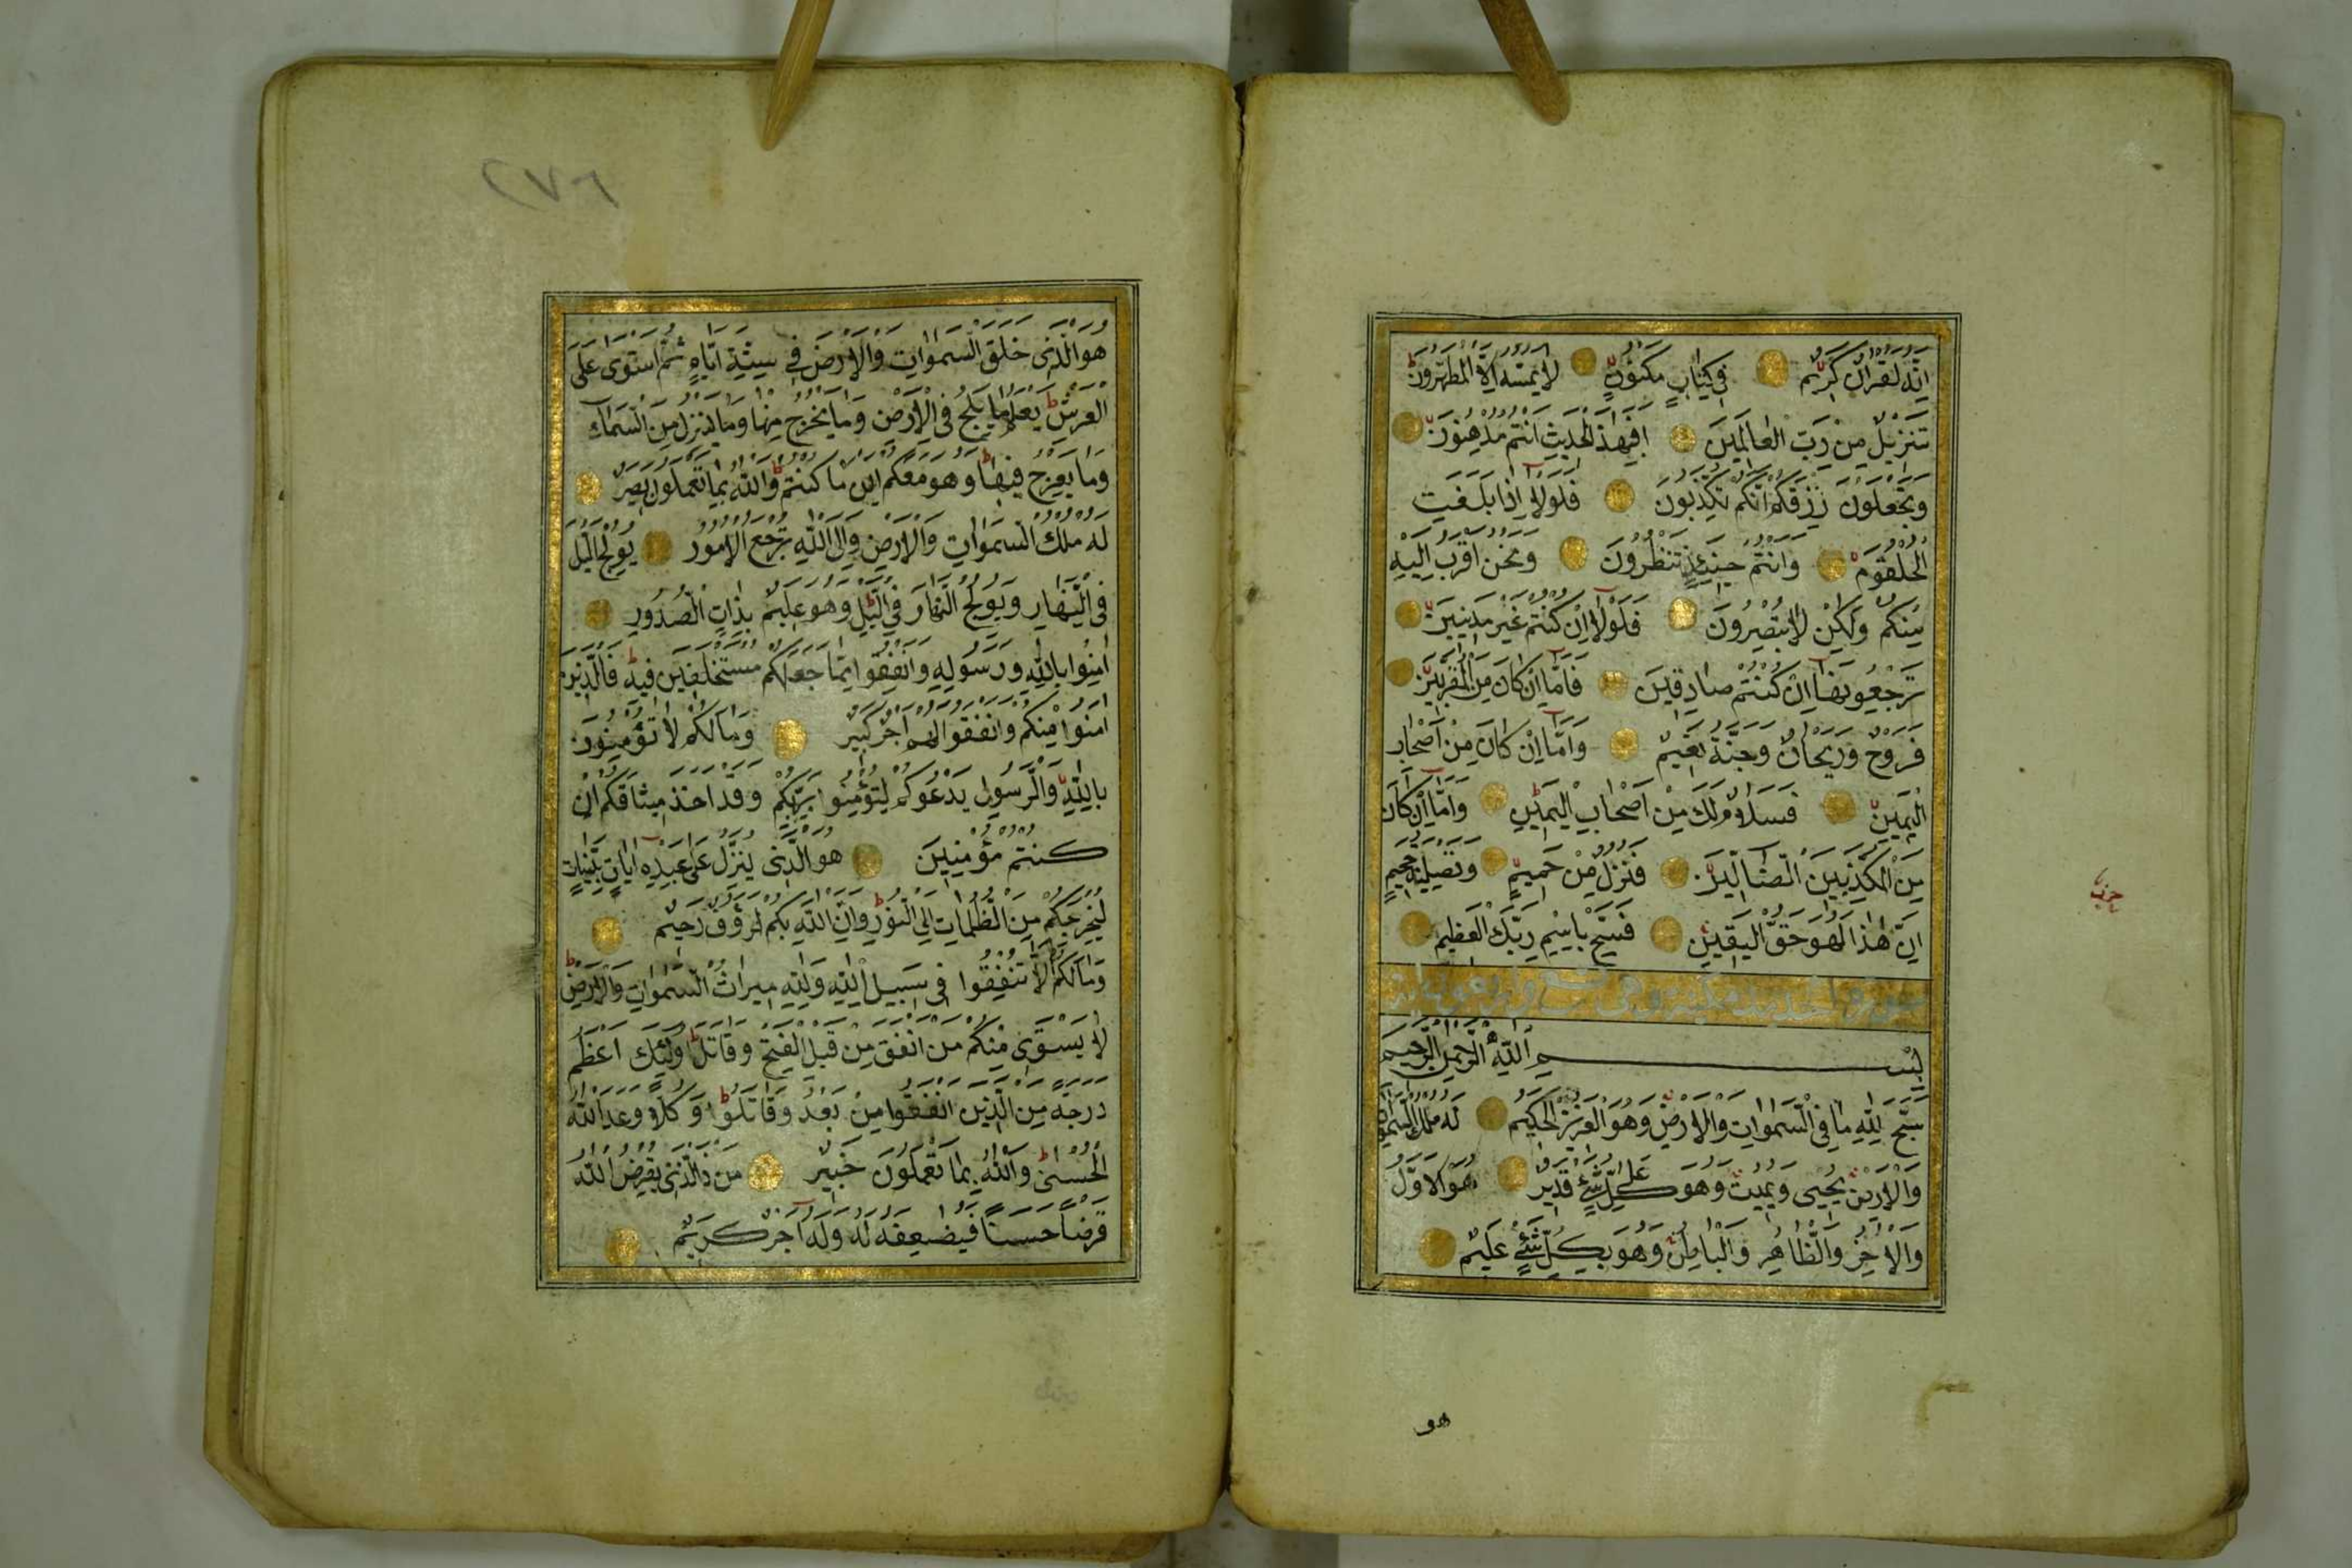 انه لقران كريم في كتاب مكنون لا يمسه الا المطهرون
تنزيل من رب العالمين افبهذا الحديث انتم مدهنون
وتجعلون رزقكم انكم تكذبون فلولا اذا بلغت
الحلقوم وانتم حينئذ تنظرون ونحن اقرب اليه
منكم ولكن لا تبصرون فلولا ان كنتم غير مدينين
ترجعونها ان كنتم صادقين فاما ان كان من المقربين
فروح وريحان وجنة نعيم واما ان كان من اصحاب
اليمين فسلام لك من اصحاب اليمين واما ان كان
من المكذبين الضالين فنزل من حميم وتصلية جحيم
ان هذا لهو حق اليقين فسبح باسم ربك العظيم
بسم الله الرحمن الرحيم
سبح لله ما في السموات والارض وهو العزيز الحكيم له ملك السموات
والارض يحيى ويميت وهو على كل شئ قدير هو الاول
والاخر والظاهر والباطن وهو بكل شئ عليم
هو
حزب
٢٧٦
هو الذى خلق السموات والارض في ستة ايام ثم استوى على
العرش يعلم ما يلج في الارض وما يخرج منها وما ينزل من السماء
وما يعرج فيها وهو معكم اين ما كنتم والله بما تعملون بصير
له ملك السموات والارض والى الله ترجع الامور يولج الليل
في النهار ويولج النهار في الليل وهو عليم بذات الصدور
امنوا بالله ورسوله وانفقوا مما جعلكم مستخلفين فيه فالذين
امنوا منكم وانفقوا لهم اجر كبير وما لكم لا تؤمنون
بالله والرسول يدعوكم لتؤمنوا بربكم وقد اخذ ميثاقكم ان
كنتم مؤمنين هو الذى ينزل على عبده ايات بينات
ليخرجكم من الظلمات الى النور وان الله بكم لرؤف رحيم
وما لكم الا تنفقوا في سبيل الله ولله ميراث السموات والارض
لا يستوى منكم من انفق من قبل الفتح وقاتل اولئك اعظم
درجة من الذين انفقوا من بعد وقاتلوا وكلا وعد الله
الحسنى والله بما تعملون خبير من ذا الذى يقرض الله
قرضا حسنا فيضعفه له وله اجر كريم